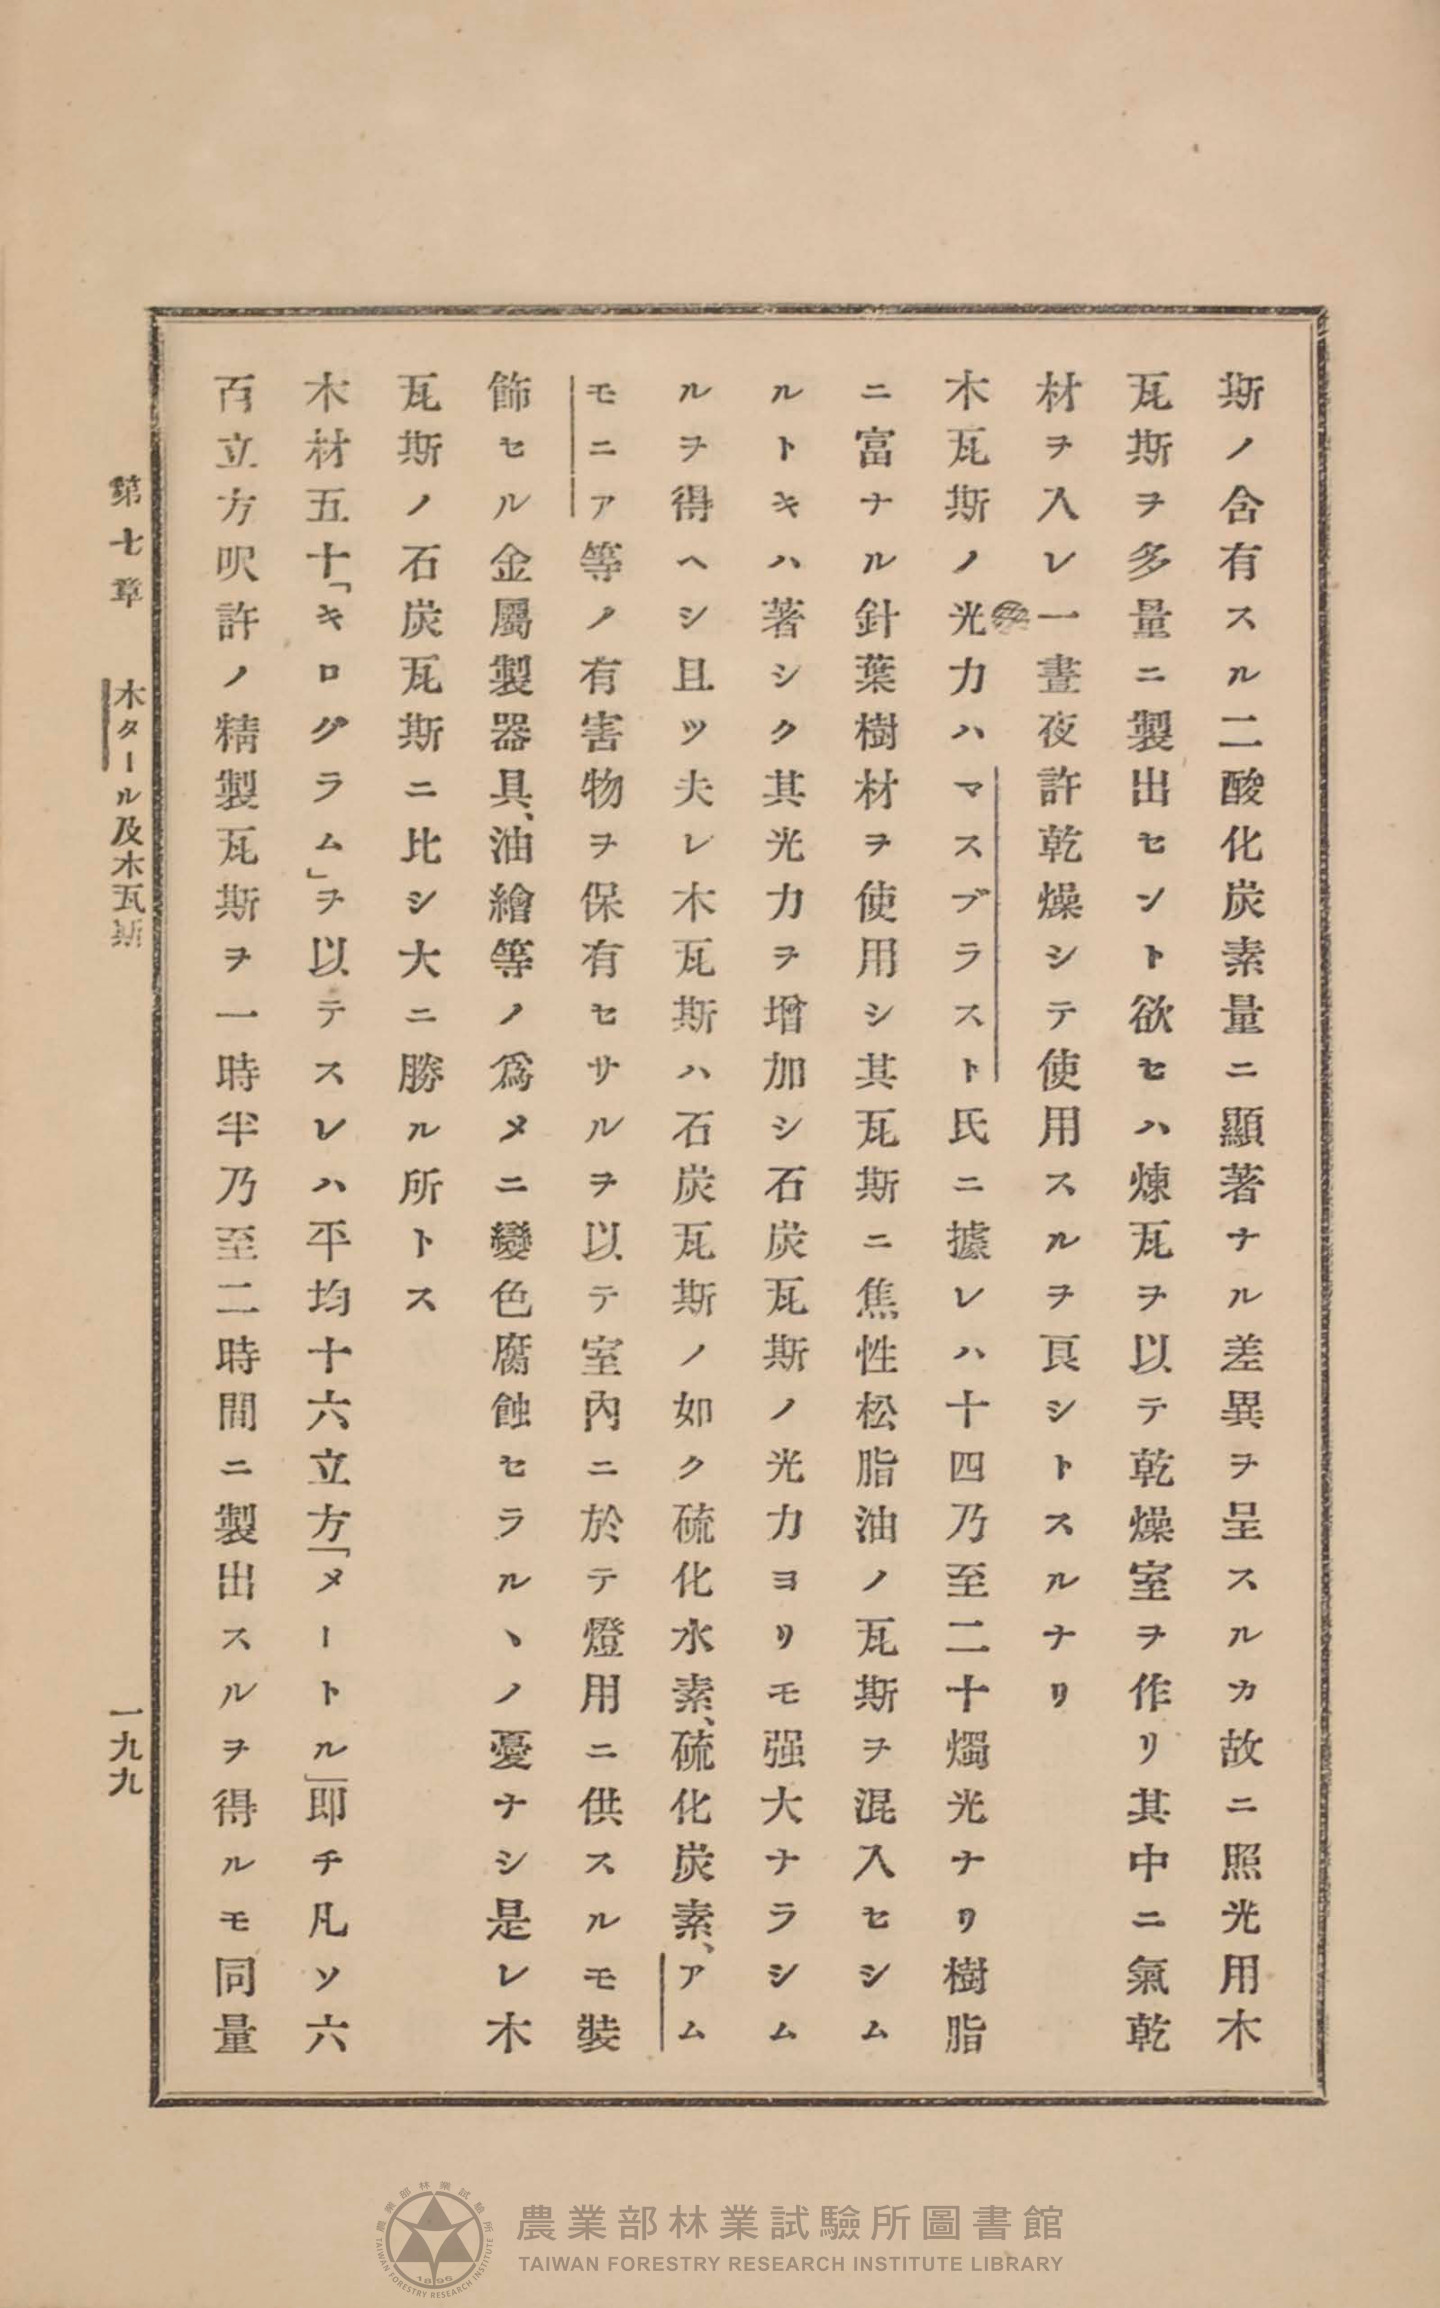 斯ノ含有スル二酸化炭素量ニ顯著ナル差異ヲ呈スルカ故ニ照光用木
瓦斯ヲ多量ニ製出セント欲セハ煉瓦ヲ以テ乾燥室ヲ作リ其中ニ氣乾
材ヲ入レ一晝夜許乾燥シテ使用スルヲ良シトスルナリ
木瓦斯ノ光力ハマスブラスト氏ニ據レハ十四乃至二十燭光ナリ樹脂
ニ富ナル針葉樹材ヲ使用シ其瓦斯ニ焦性松脂油ノ瓦斯ヲ混入セシム
ルトキハ著シク其光力ヲ增加シ石炭瓦斯ノ光力ヨリモ强大ナラシム
ルヲ得ヘシ且ツ夫レ木瓦斯ハ石炭瓦斯ノ如ク硫化水素、硫化炭素、アム
モニア等ノ有害物ヲ保有セサルヲ以テ室內ニ於テ燈用ニ供スルモ裝
飾セル金屬製器具、油繪等ノ爲メニ變色腐蝕セラルヽノ憂ナシ是レ木
瓦斯ノ石炭瓦斯ニ比シ大ニ勝ル所トス
木材五十「キログラム」ヲ以テスレハ平均十六立方「メートル」即チ凡ソ六
百立方呎許ノ精製瓦斯ヲ一時半乃至二時間ニ製出スルヲ得ルモ同量
第七章 木タール及木瓦斯 一九九
農業部林業試驗所圖書館
TAIWAN FORESTRY RESEARCH INSTITUTE LIBRARY
農業部林業試驗所
TAIWAN FORESTRY RESEARCH INSTITUTE
1896